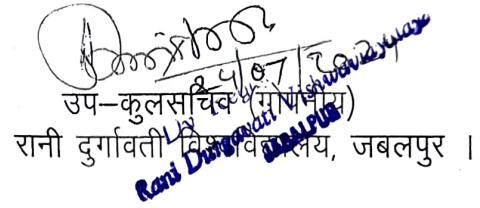 24/07/2024
उप–कुलसचिव (गोपनीय)
रानी दुर्गावती विश्वविद्यालय, जबलपुर ।
Rani Durgawati Vishwavidyalaya
JABALPUR